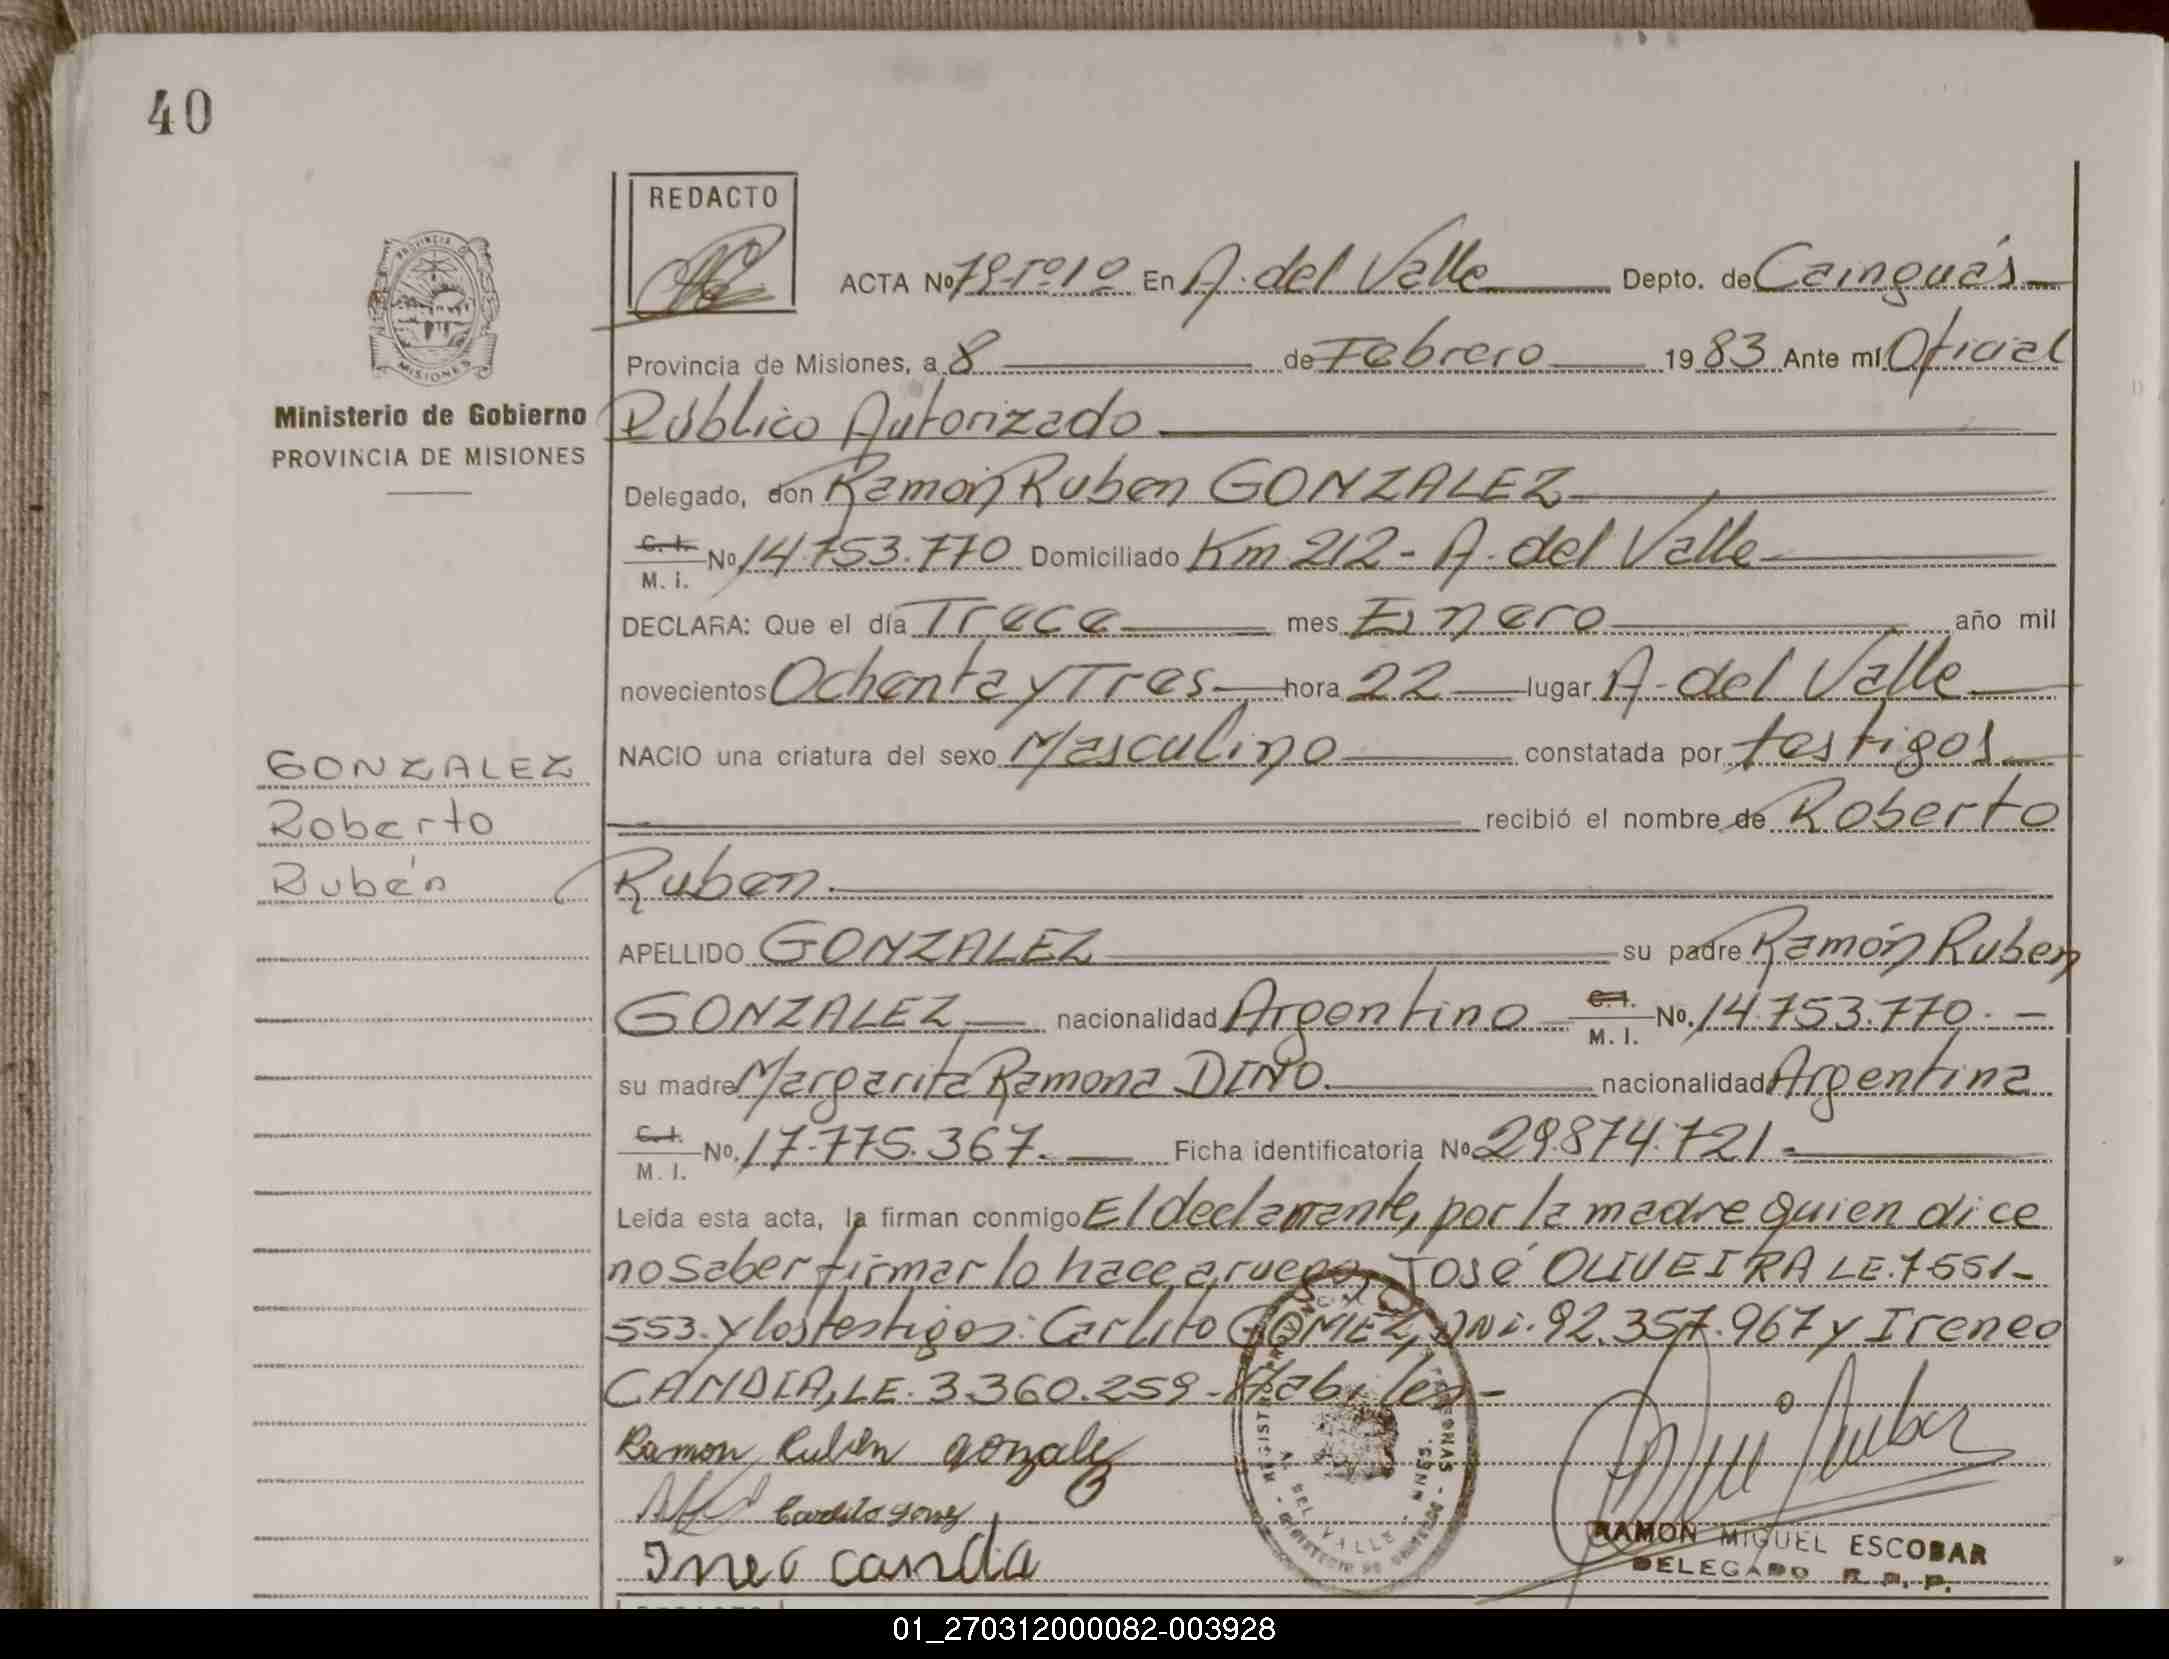 40
REDACTO
ACTA No 79-Tº1º En A. del Valle Depto. de Cainguás
Provincia de Misiones, a 8 de Febrero 1983 Ante mí Oficial
Público Autorizado
PROVINCIA
MISIONES
Ministerio de Gobierno
PROVINCIA DE MISIONES
Delegado, don Ramón Ruben GONZALEZ
C. I. M. I. No 14.753.770 Domiciliado Km 212 - A. del Valle
DECLARA: Que el día Trece mes Enero año mil
novecientos Ochenta y Tres hora 22 lugar A. del Valle
NACIO una criatura del sexo Masculino constatada por testigos
recibió el nombre de Roberto
Ruben.
GONZALEZ
Roberto
Rubén
APELLIDO GONZALEZ su padre Ramón Ruben
GONZALEZ nacionalidad Argentino C. I. M. I. No. 14.753.770. -
su madre Margarita Ramona DINO. nacionalidad Argentina
C. I. M. I. No. 17.775.367. Ficha identificatoria No 29.874.721.-
Leída esta acta, la firman conmigo El declarante, por la madre quien dice
no saber firmar lo hace a ruego, José OLIVEIRA LE. 7.551-
553. y los testigos: Carlito GOMEZ, DNi. 92.357.967 y Ireneo
CANDIA, LE. 3.360.259 - Habiles -
Ramon Ruben gonzalez
Carlito gomez
Ineo candia
RAMON MIGUEL ESCOBAR
DELEGADO R. P. P.
01_270312000082-003928